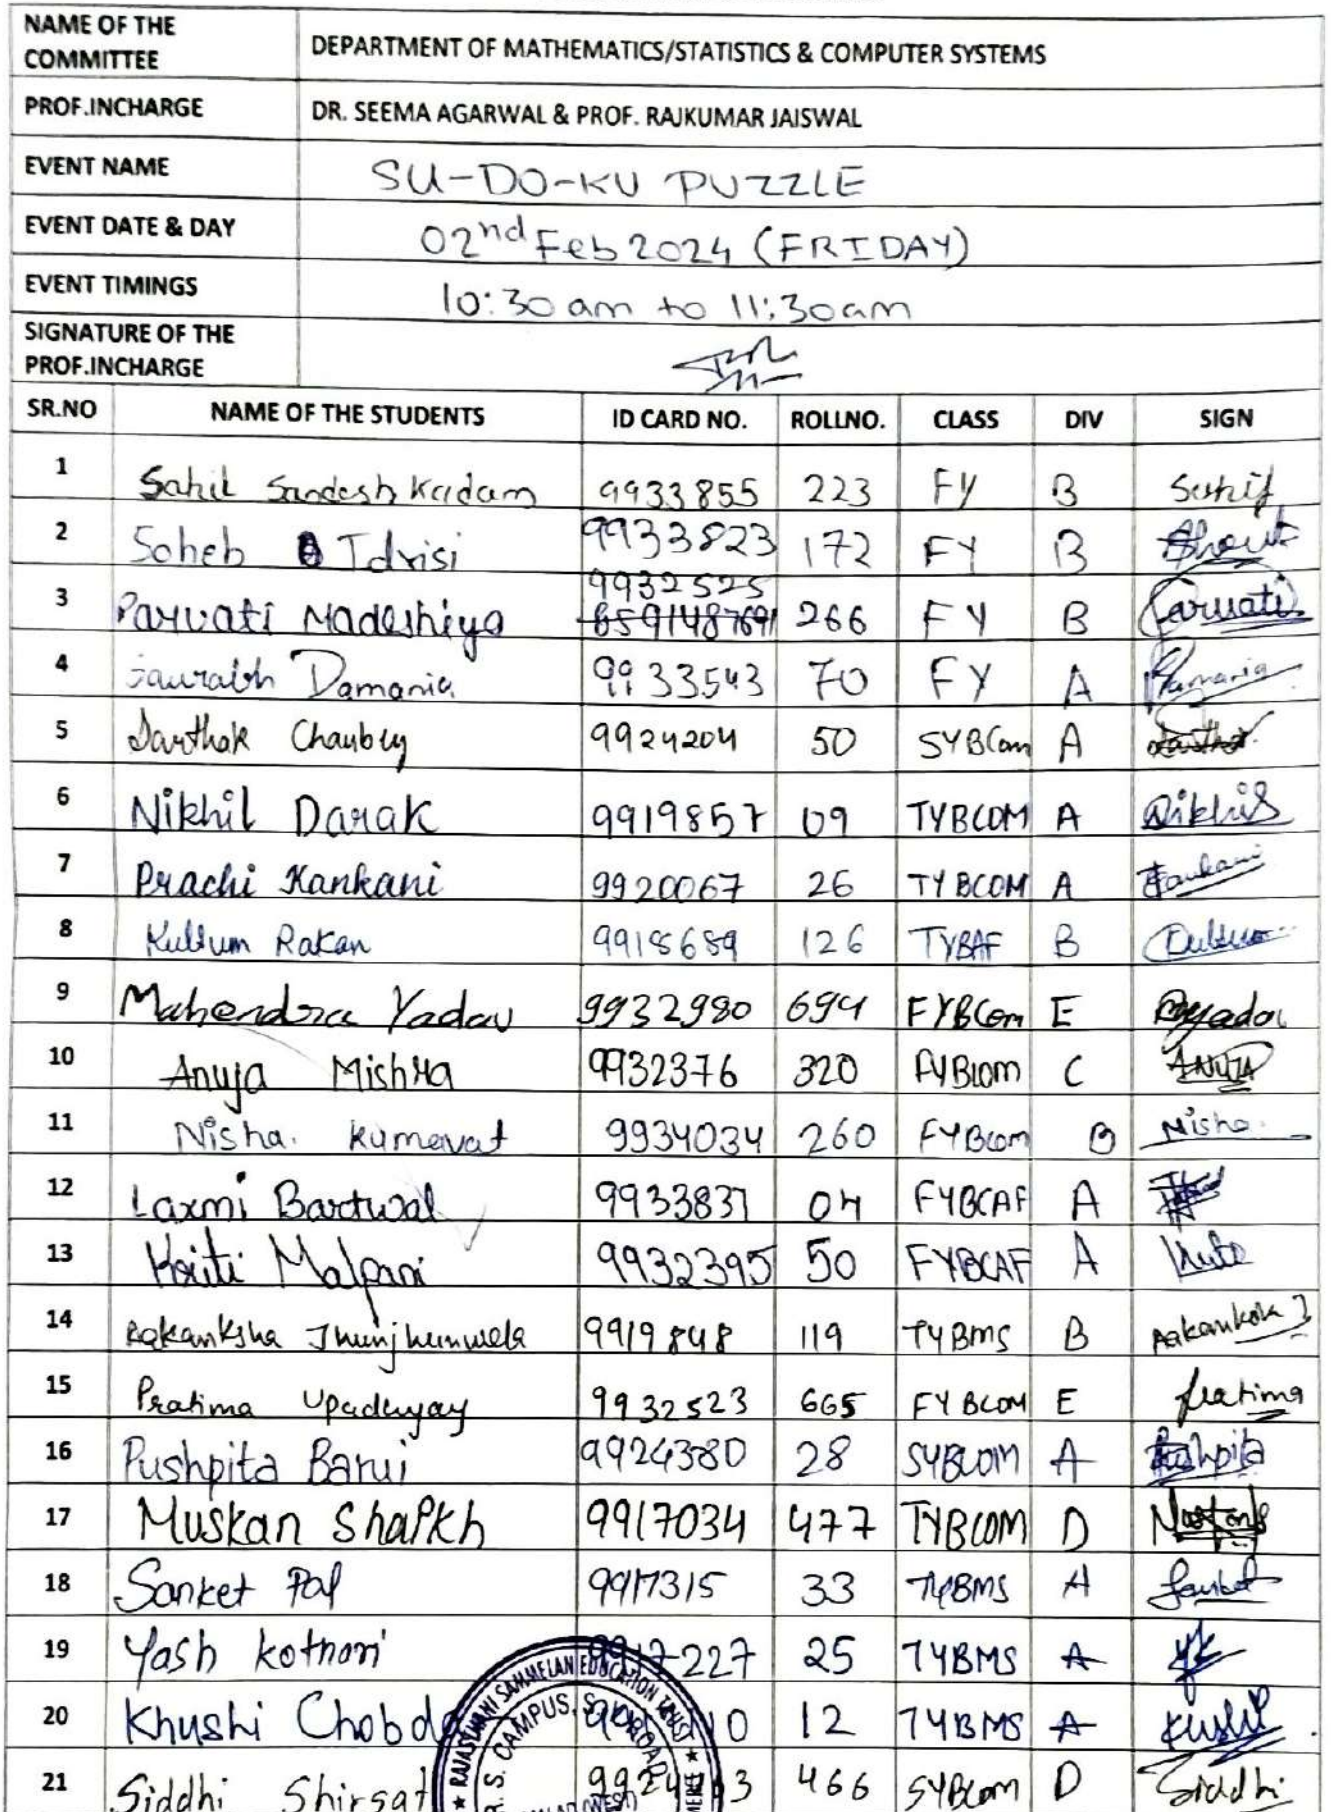 NAME OF THE COMMITTEE DEPARTMENT OF MATHEMATICS/STATISTICS & COMPUTER SYSTEMS
PROF.INCHARGE DR. SEEMA AGARWAL & PROF. RAJKUMAR JAISWAL
EVENT NAME SU-DO-KU PUZZLE
EVENT DATE & DAY 02nd Feb 2024 (FRIDAY)
EVENT TIMINGS 10:30 am to 11:30am
SIGNATURE OF THE PROF.INCHARGE
SR.NO NAME OF THE STUDENTS ID CARD NO. ROLLNO. CLASS DIV SIGN
1 Sahil Sandesh Kadam 9933855 223 FY B Sahil
2 Soheb Idrisi 9933823 172 FY B
3 Parvati Madeshiya 9932525 266 FY B Parvati
4 Saurabh Damania 9933543 70 FY A Damania
5 Sarthak Chaubey 9924204 50 SYBCom A
6 Nikhil Darak 9919857 09 TYBCOM A Nikhil
7 Prachi Kankani 9920067 26 TYBCOM A Kankani
8 Kulsum Rakan 9918689 126 TYBAF B
9 Mahendra Yadav 9932980 694 FYBCom E
10 Anuja Mishra 9932376 320 FYBCom C ANUJA
11 Nisha. Kumavat 9934034 260 FYBcom B Nisha.
12 Laxmi Bartwal 9933837 04 FYBCAF A
13 Kriti Malpani 9932395 50 FYBCAF A
14 Aakanksha Jhunjhunwala 9919848 119 TYBMS B Aakanksha J
15 Pratima Upadhyay 9932523 665 FYBCOM E Pratima
16 Pushpita Barui 9924380 28 SYBCOM A Pushpita
17 Muskan Shaikh 9917034 477 TYBCOM D
18 Sanket Pal 9917315 33 TYBMS A Sanket
19 Yash Kothari 227 25 TYBMS A YK
20 Khushi 12 TYBMS A Kushi
21 Siddhi Shirsat 466 SYBcom D Siddhi
RAJASTHANI SAMMELAN EDUCATION TRUST
R. S. CAMPUS, S. V. ROAD